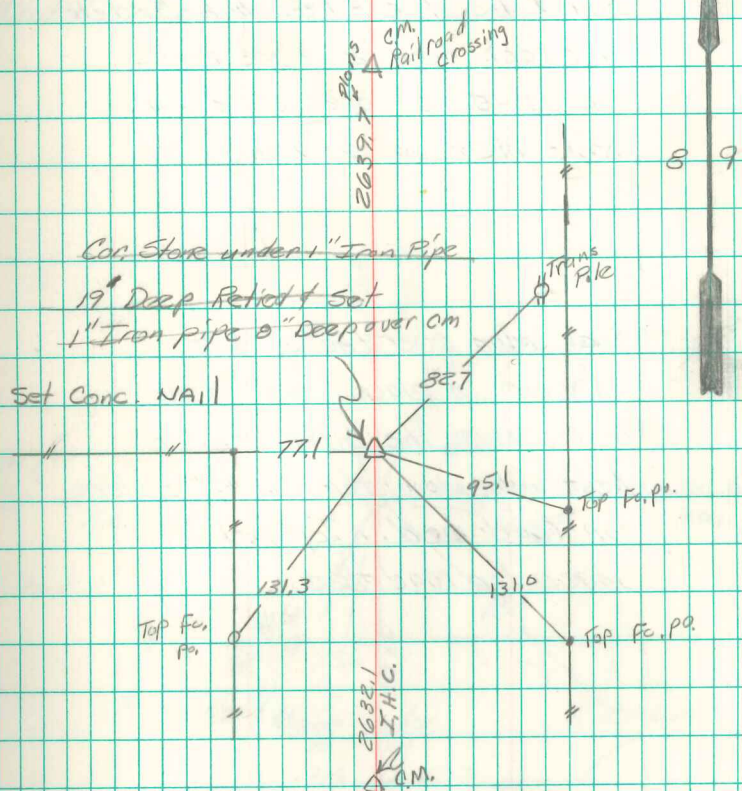 C.M.
Railroad
Crossing
2639.7 Plans
8 9
Cor. Stone under 1" Iron Pipe
19" Deep Retied & Set
1" Iron pipe 8" Deep over cm
Trans
Pole
Set Conc. NAil
82.7
77.1
95.1
Top Fc. po.
131.3
131.0
Top Fc.
po.
Top Fc. po.
2632.1
I.H.C.
C.M.